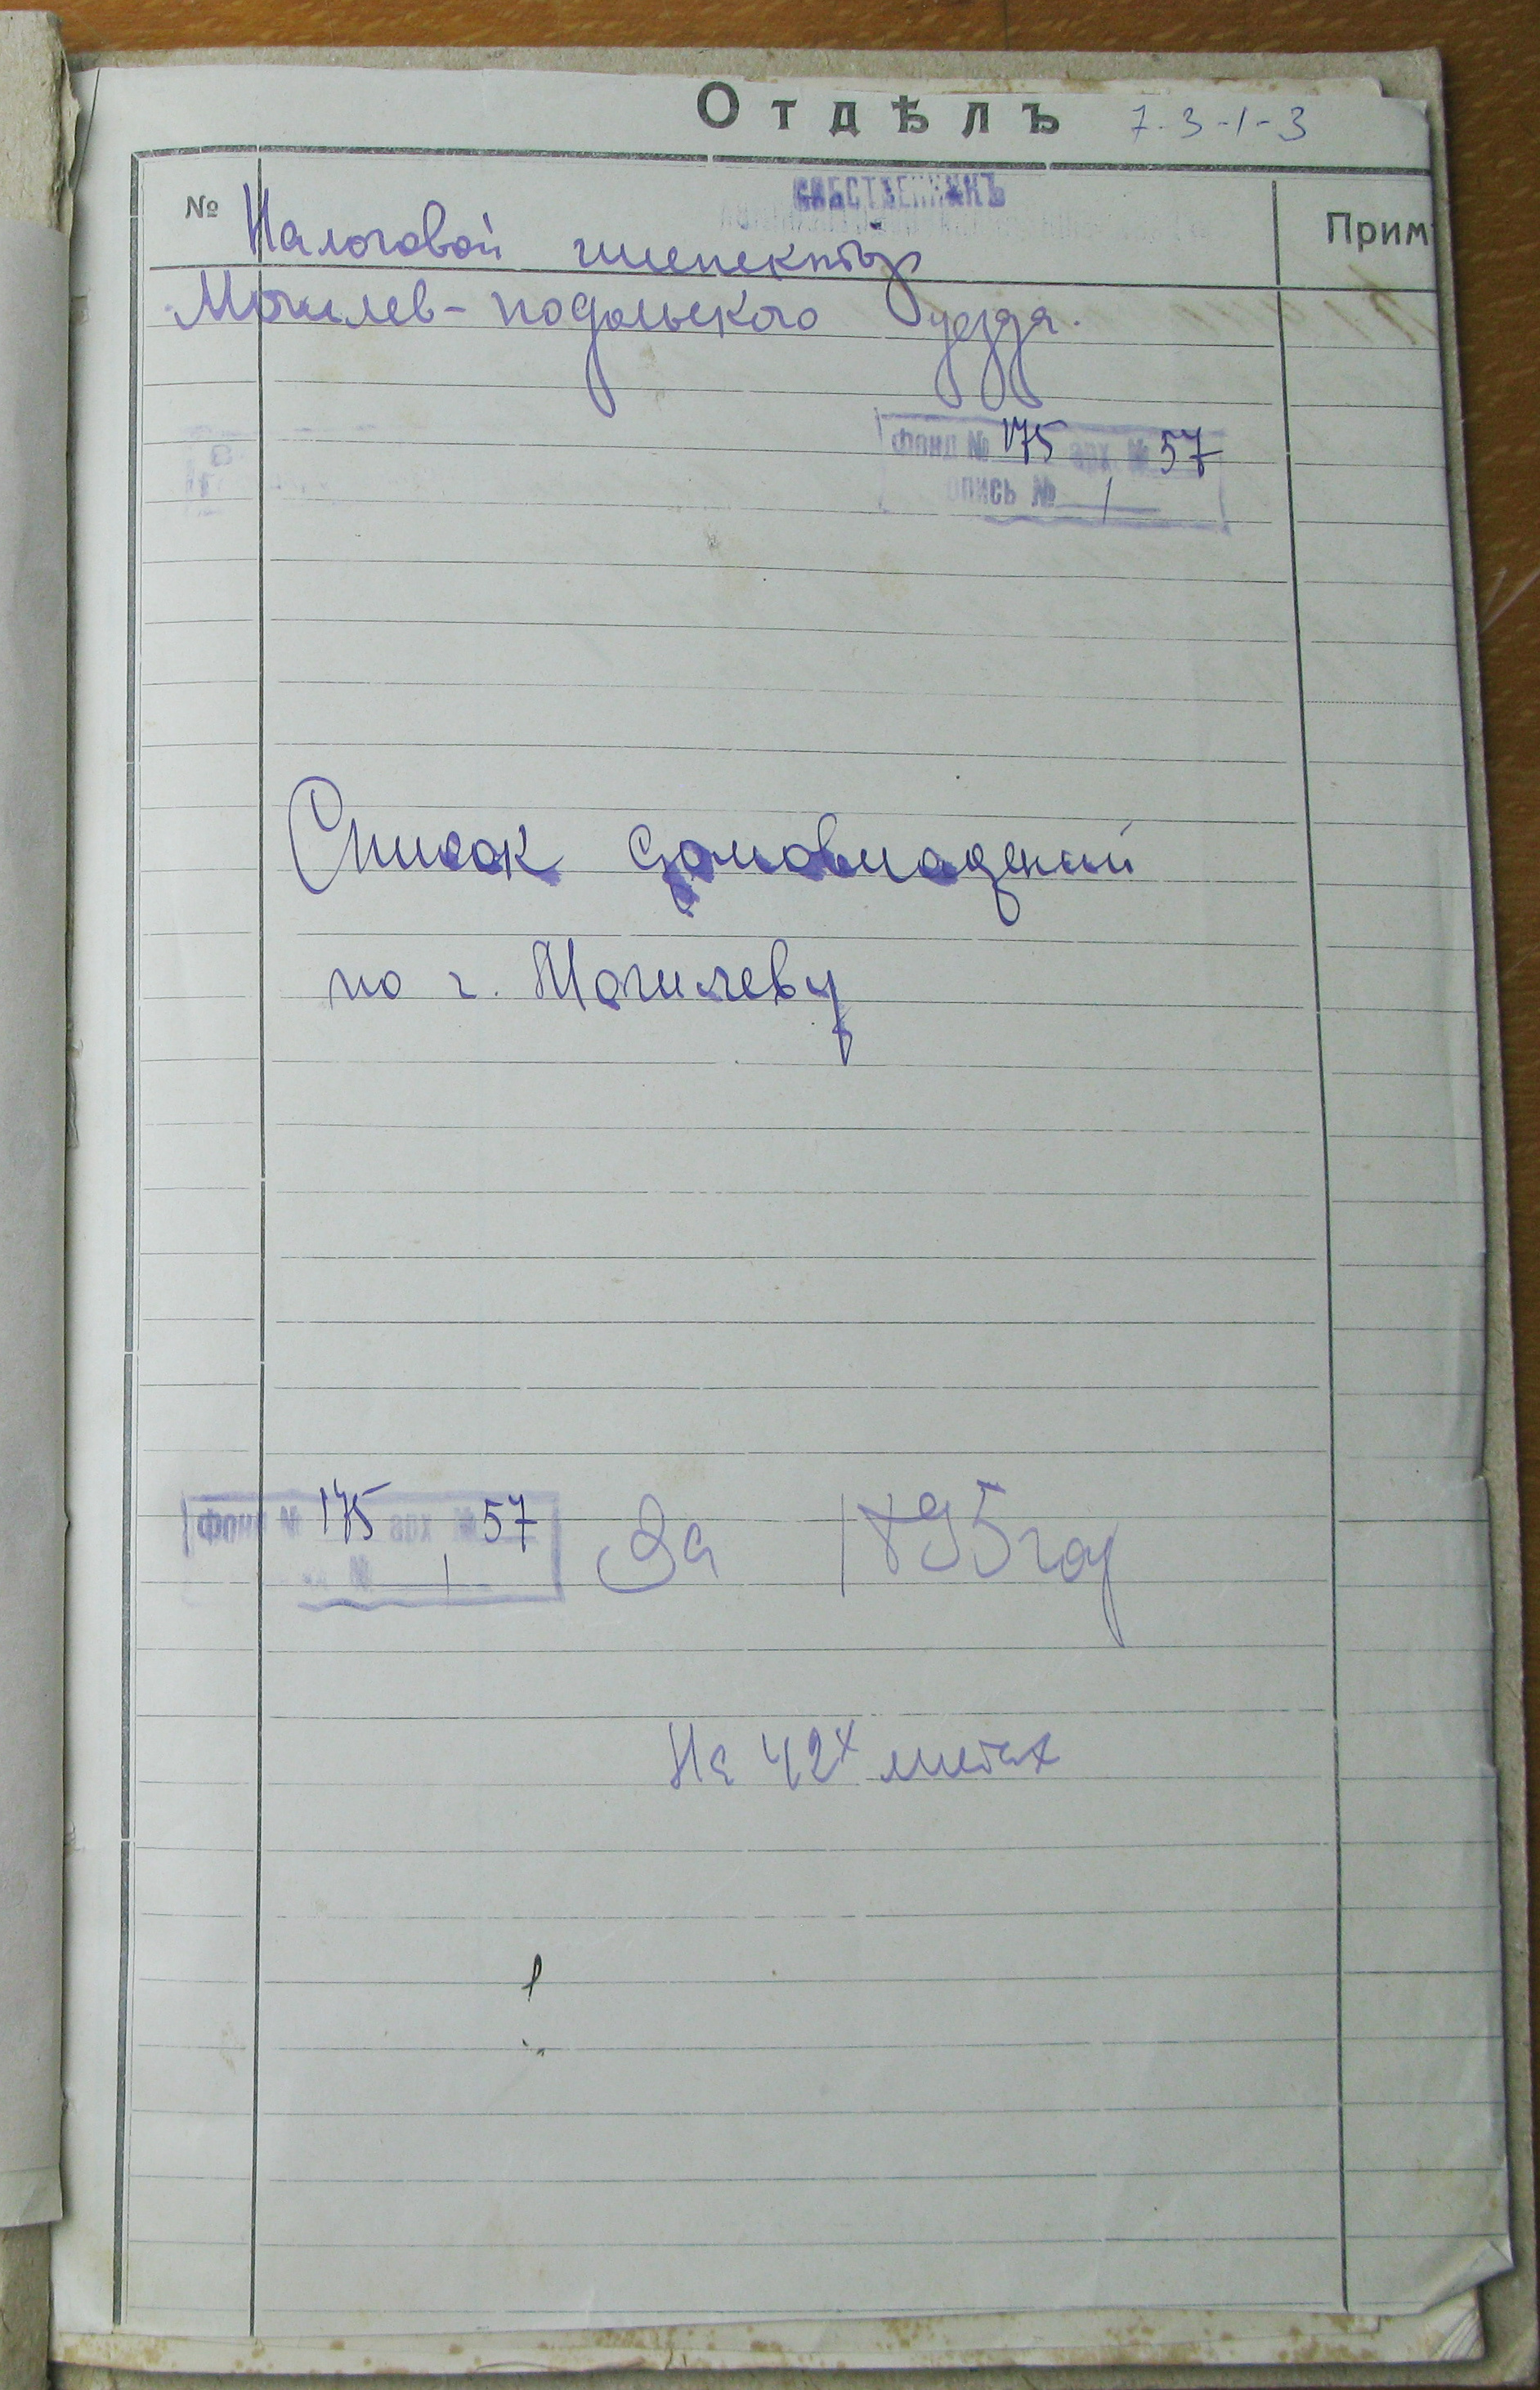 Отдѣлъ 7-3-1-3
№
СОБСТВЕННИКЪ
Прим
Налоговой инспектор
Могилев-подольского уезда.
Фонд № 175 арх № 57
опись № 1
Список домовладений
по г. Могилеву
Фонд № 175 арх № 57
№ 1
За 1895 год
На 42х листах